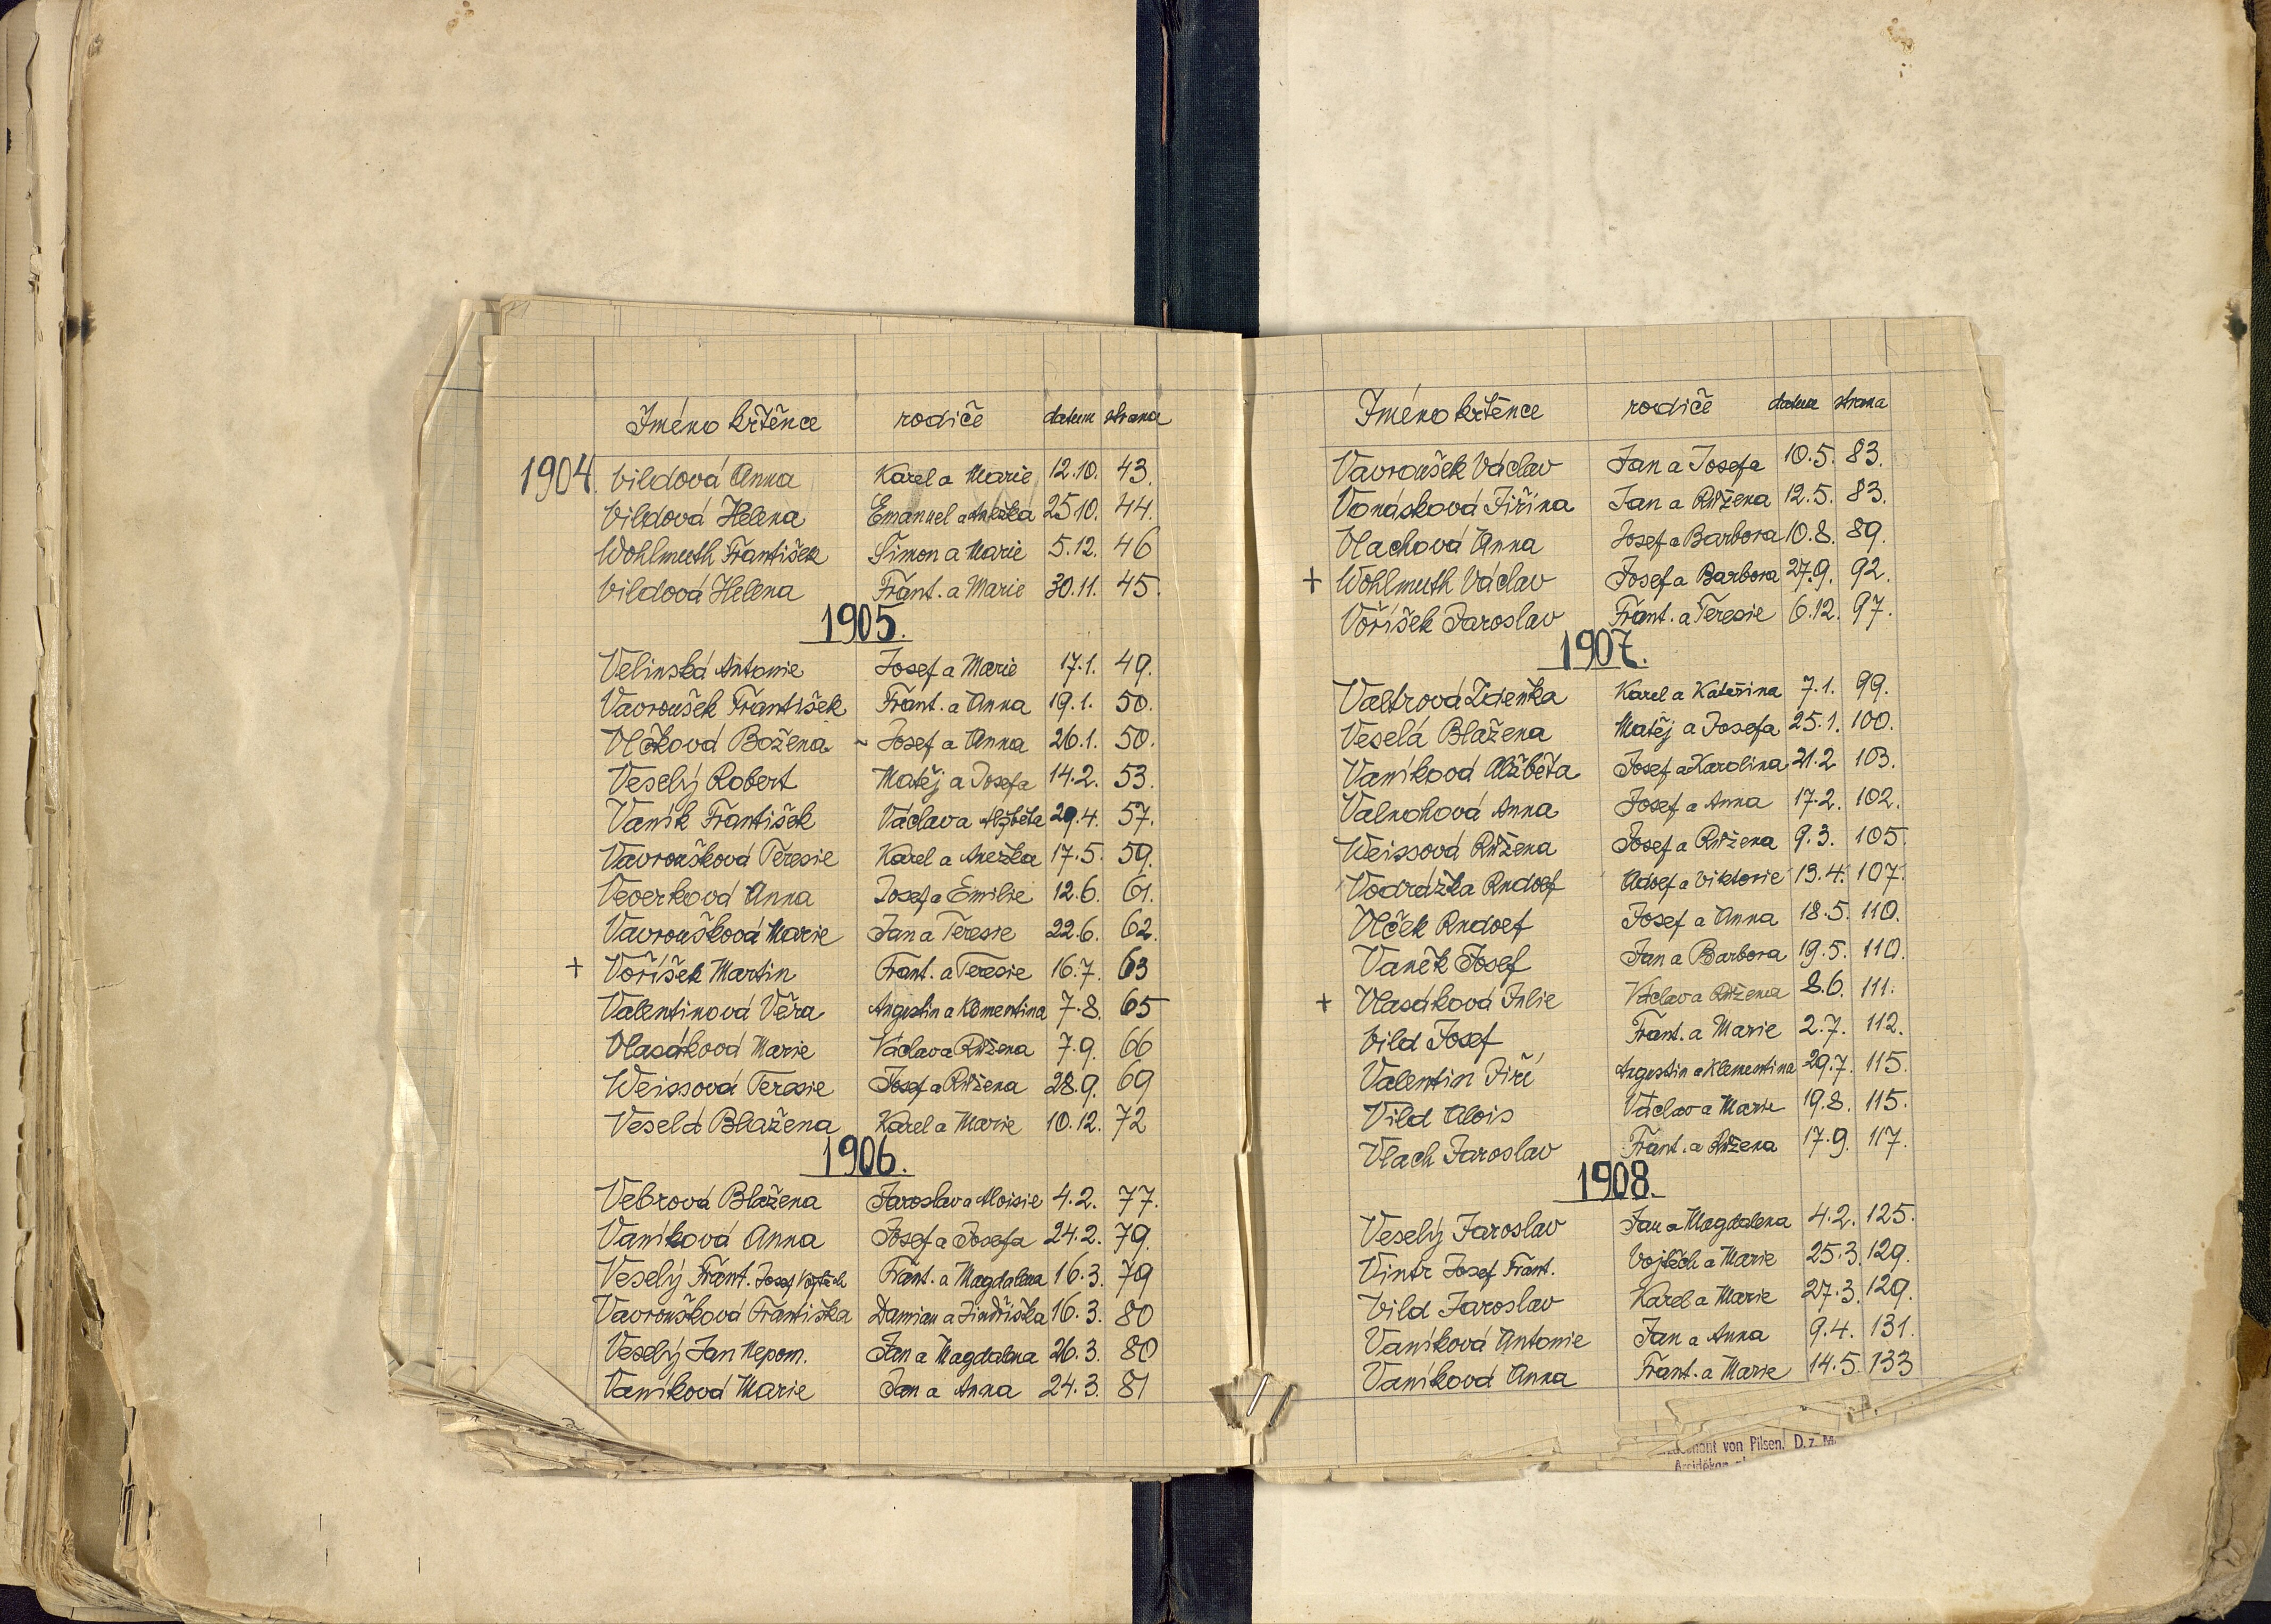 Jméno křtěnce rodiče datum strana
1904. Vildová Anna Karel a Marie 12.10. 43.
Vildová Helena Emanuel a Anežka 25.10. 44.
Wohlmuth František Šimon a Marie 5.12. 46
Vildová Helena Frant. a Marie 30.11. 45.
1905.
Velinská Antonie Josef a Marie 17.1. 49.
Vavroušek František Frant. a Anna 19.1. 50.
Vlčková Božena - Josef a Anna 26.1. 50.
Veselý Robert Matěj a Josefa 14.2. 53.
Vaník František Václav a Alžběta 29.4. 57.
Vavroušková Teresie Karel a Anežka 17.5. 59.
Veverková Anna Josef a Emilie 12.6. 61.
Vavroušková Marie Jan a Teresie 22.6. 62.
+ Voříšek Martin Frant. a Teresie 16.7. 63
Valentinová Věra Augustin a Klementina 7.8. 65
Vlasáková Marie Václav a Růžena 7.9. 66
Weissová Teresie Josef a Růžena 28.9. 69
Veselá Blažena Karel a Marie 10.12. 72
1906.
Vebrová Blažena Jaroslav a Aloisie 4.2. 77.
Vaníková Anna Josef a Josefa 24.2. 79.
Veselý Frant. Josef Vojtěch Frant. a Magdalena 16.3. 79
Vavroušková Františka Damian a Jindřiška 16.3. 80
Veselý Jan Nepom. Jan a Magdalena 26.3. 80
Vaníková Marie Jan a Anna 24.3. 81
Jméno křtěnce rodiče datum strana
Vavroušek Václav Jan a Josefa 10.5. 83.
Vonásková Jiřina Jan a Růžena 12.5. 83.
Vlachová Anna Josef a Barbora 10.8. 89.
+ Wohlmuth Václav Josef a Barbora 27.9. 92.
Voříšek Jaroslav Frant. a Teresie 6.12. 97.
1907.
Valtrová Zdeňka Karel a Kateřina 7.1. 99.
Veselá Blažena Matěj a Josefa 25.1. 100.
Vaníková Alžběta Josef a Karolina 21.2 103.
Valnohová Anna Josef a Anna 17.2. 102.
Weissová Růžena Josef a Růžena 9.3. 105.
Vodrážka Rudolf Adolf a Viktorie 13.4. 107.
Vlček Rudolf Josef a Anna 18.5. 110.
Vaněk Josef Jan a Barbora 19.5. 110.
+ Vlasáková Julie Václav a Růžena 8.6. 111.
Vild Josef Frant. a Marie 2.7. 112.
Valentin Jiří Augustin a Klementina 29.7. 115.
Vild Alois Václav a Marie 19.8. 115.
Vlach Jaroslav Frant. a Růžena 17.9. 117.
1908.
Veselý Jaroslav Jan a Magdalena 4.2. 125.
Vintr Josef Frant. Vojtěch a Marie 25.3. 129.
Vild Jaroslav Karel a Marie 27.3. 129.
Vaníková Antonie Jan a Anna 9.4. 131.
Vaníková Anna Frant. a Marie 14.5. 133
von Pilsen. D.z.